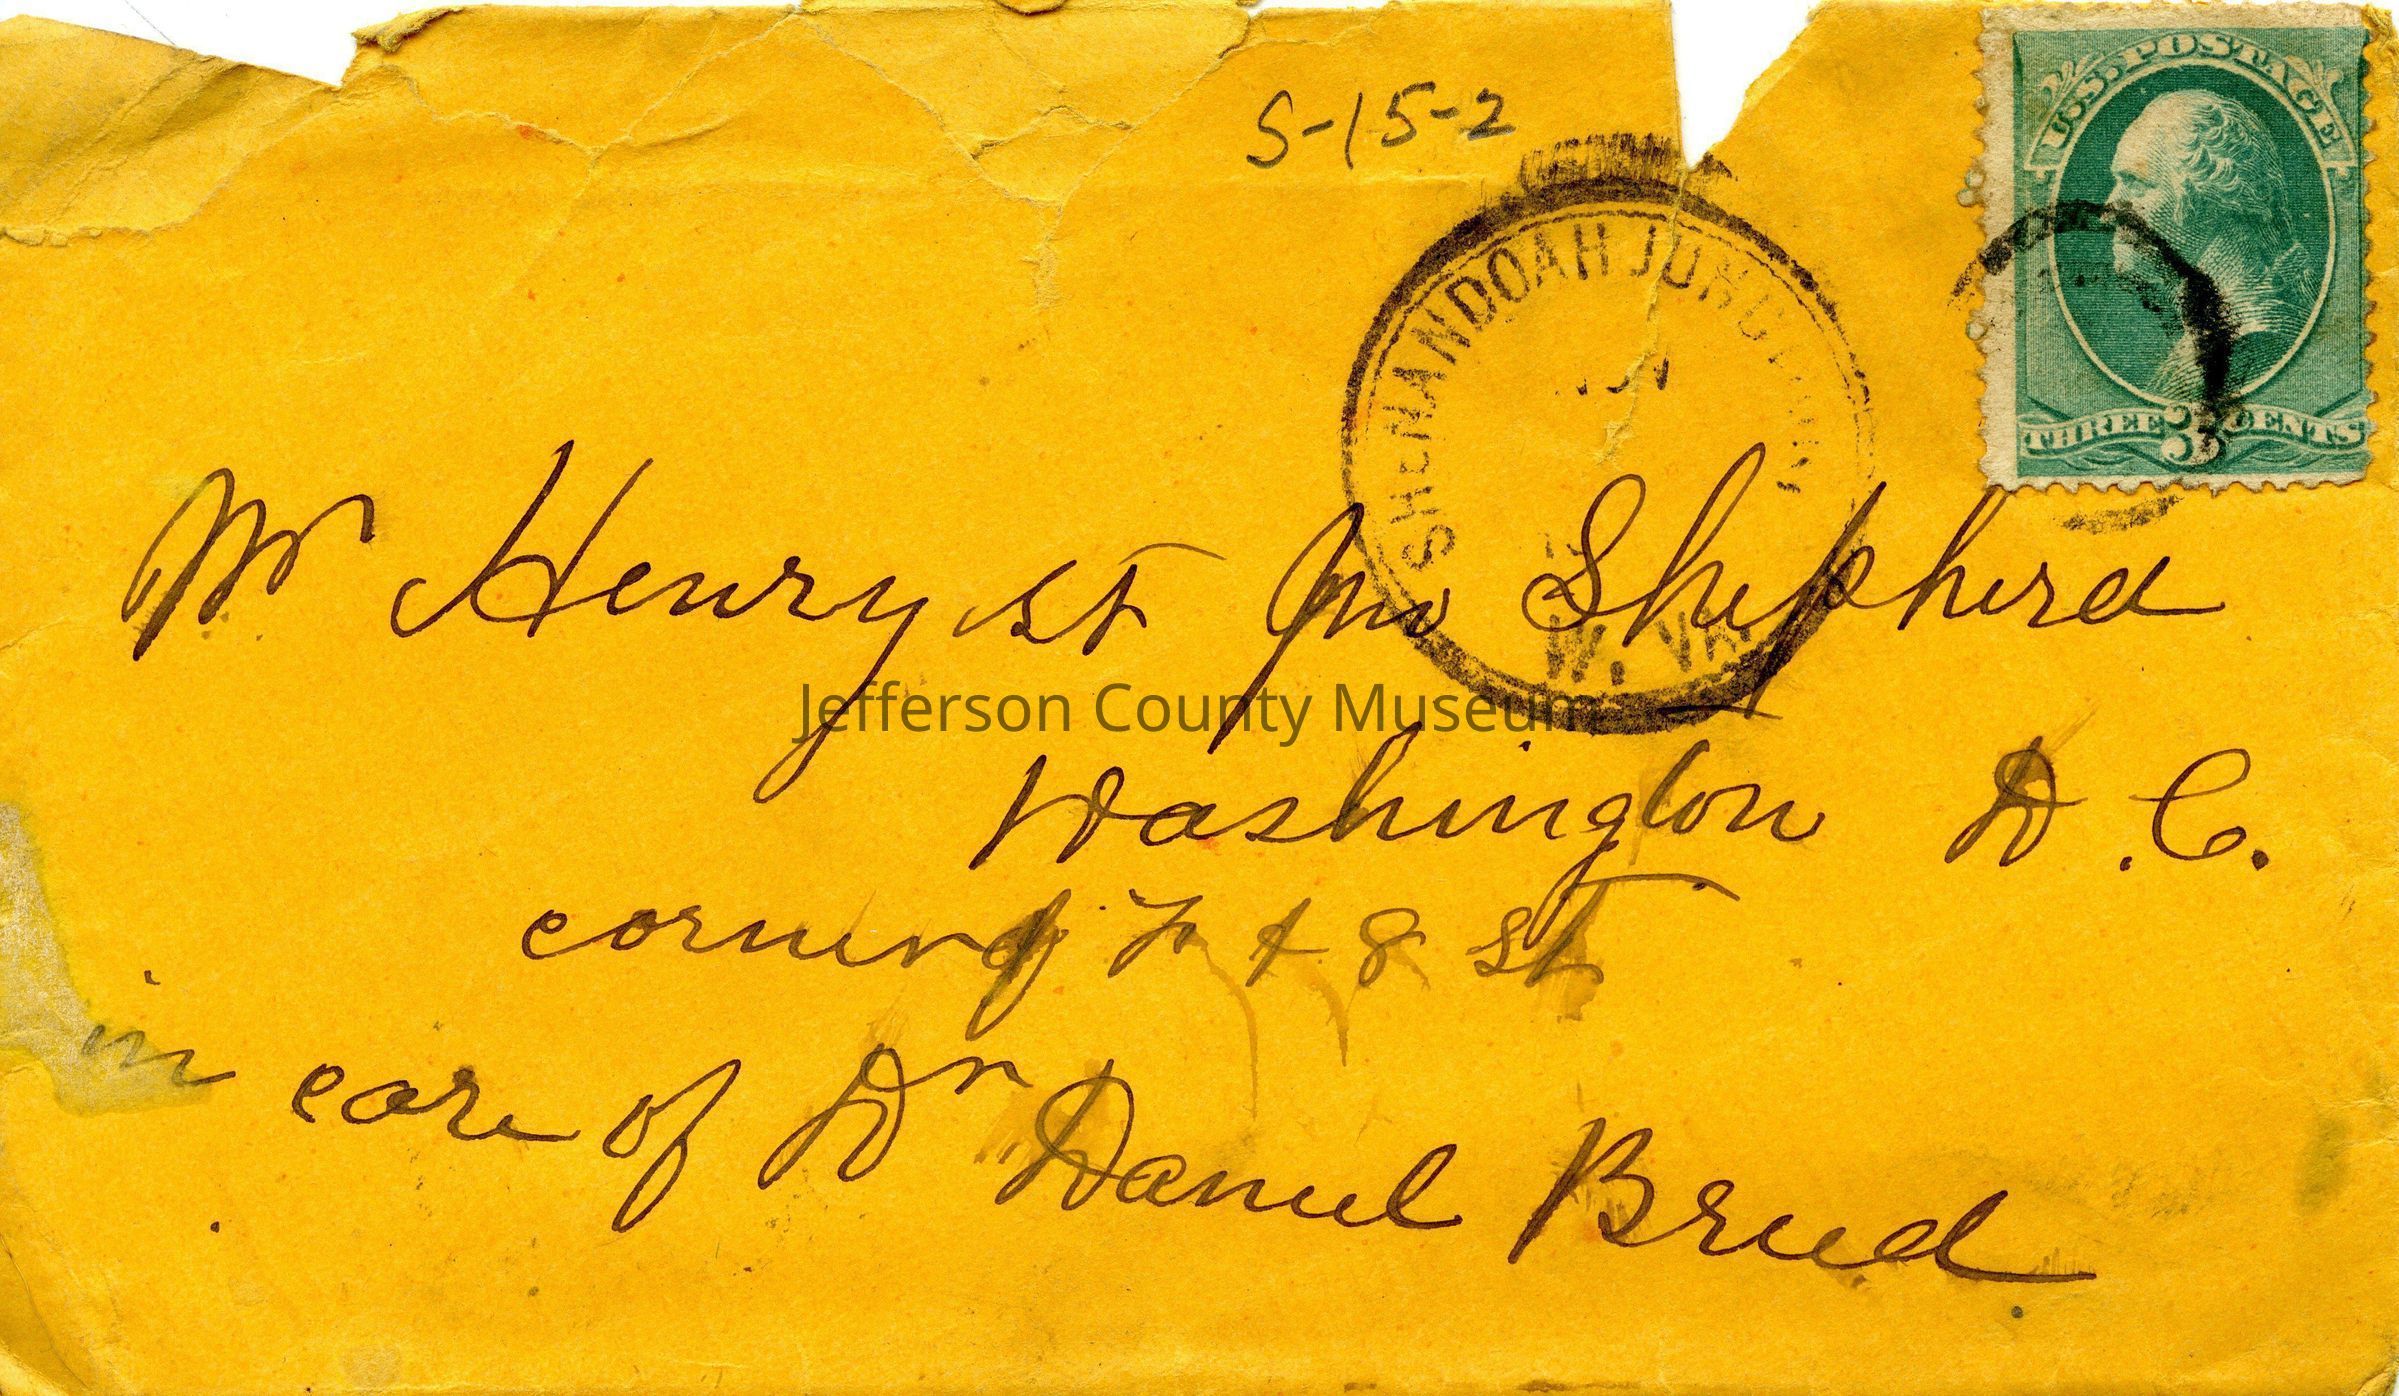 S-15-2
U.S. POSTAGE
THREE 3 CENTS
SHENANDOAH JUNCTION
W. VA.
Mr Henry St Jno Shepherd
Jefferson County Museum
Washington D.C.
corner of F & 8 St
in care of Dr Daniel Breed